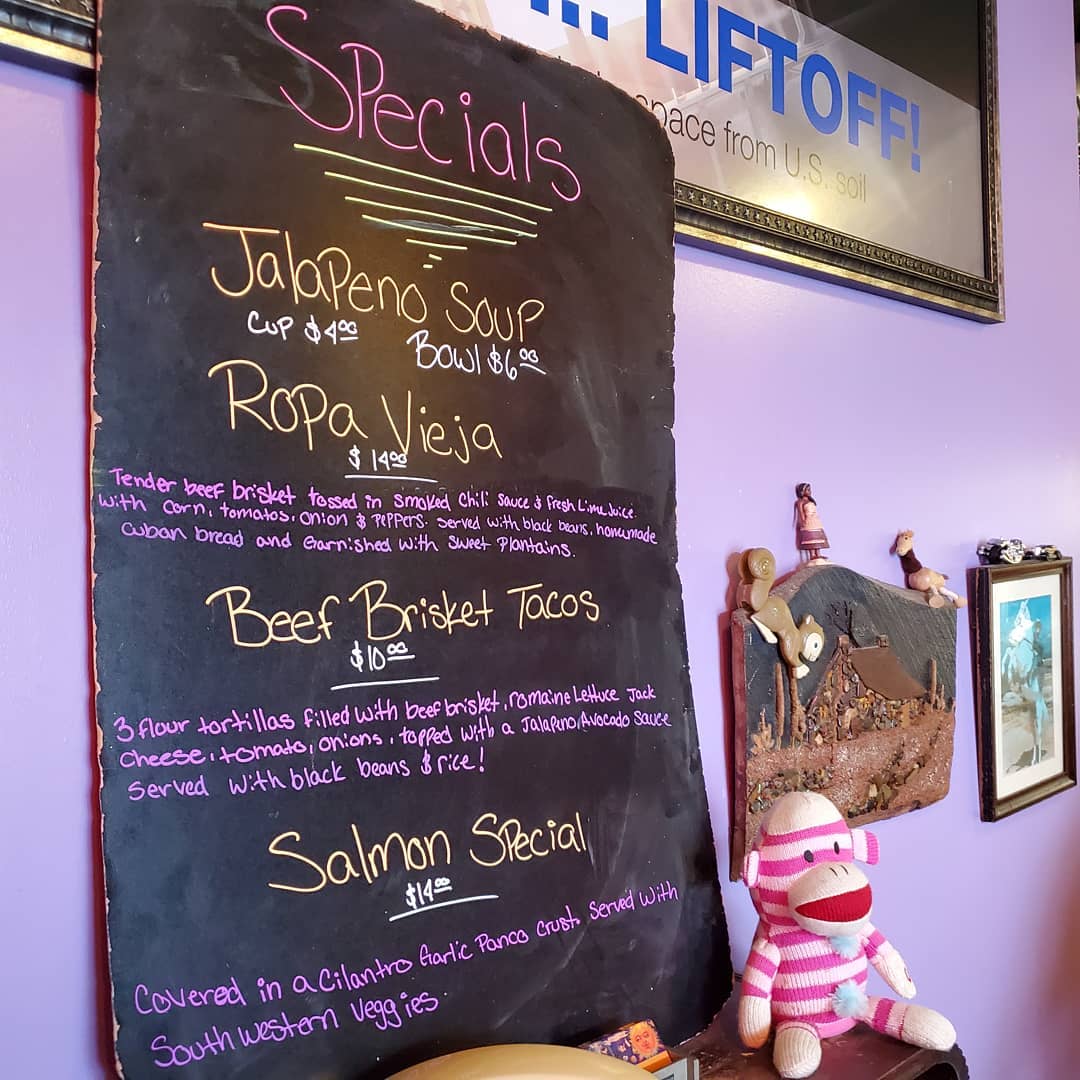 ... LIFTOFF!
space from U.S. soil
Specials
Jalapeno Soup
Cup $4.00 Bowl $6.00
Ropa Vieja
$14.00
Tender beef brisket tossed in smoked Chili Sauce & Fresh Lime Juice
with corn, tomatos, onion & Peppers. Served with black beans, homemade
cuban bread and Garnished with sweet Plantains.
Beef Brisket Tacos
$10.00
3 flour tortillas filled with beef brisket, romaine Lettuce Jack
Cheese, tomato, onions, topped with a Jalapeno, Avocado Sauce
Served with black beans & rice!
Salmon Special
$14.00
Covered in a Cilantro Garlic Panco Crust. Served with
Southwestern Veggies